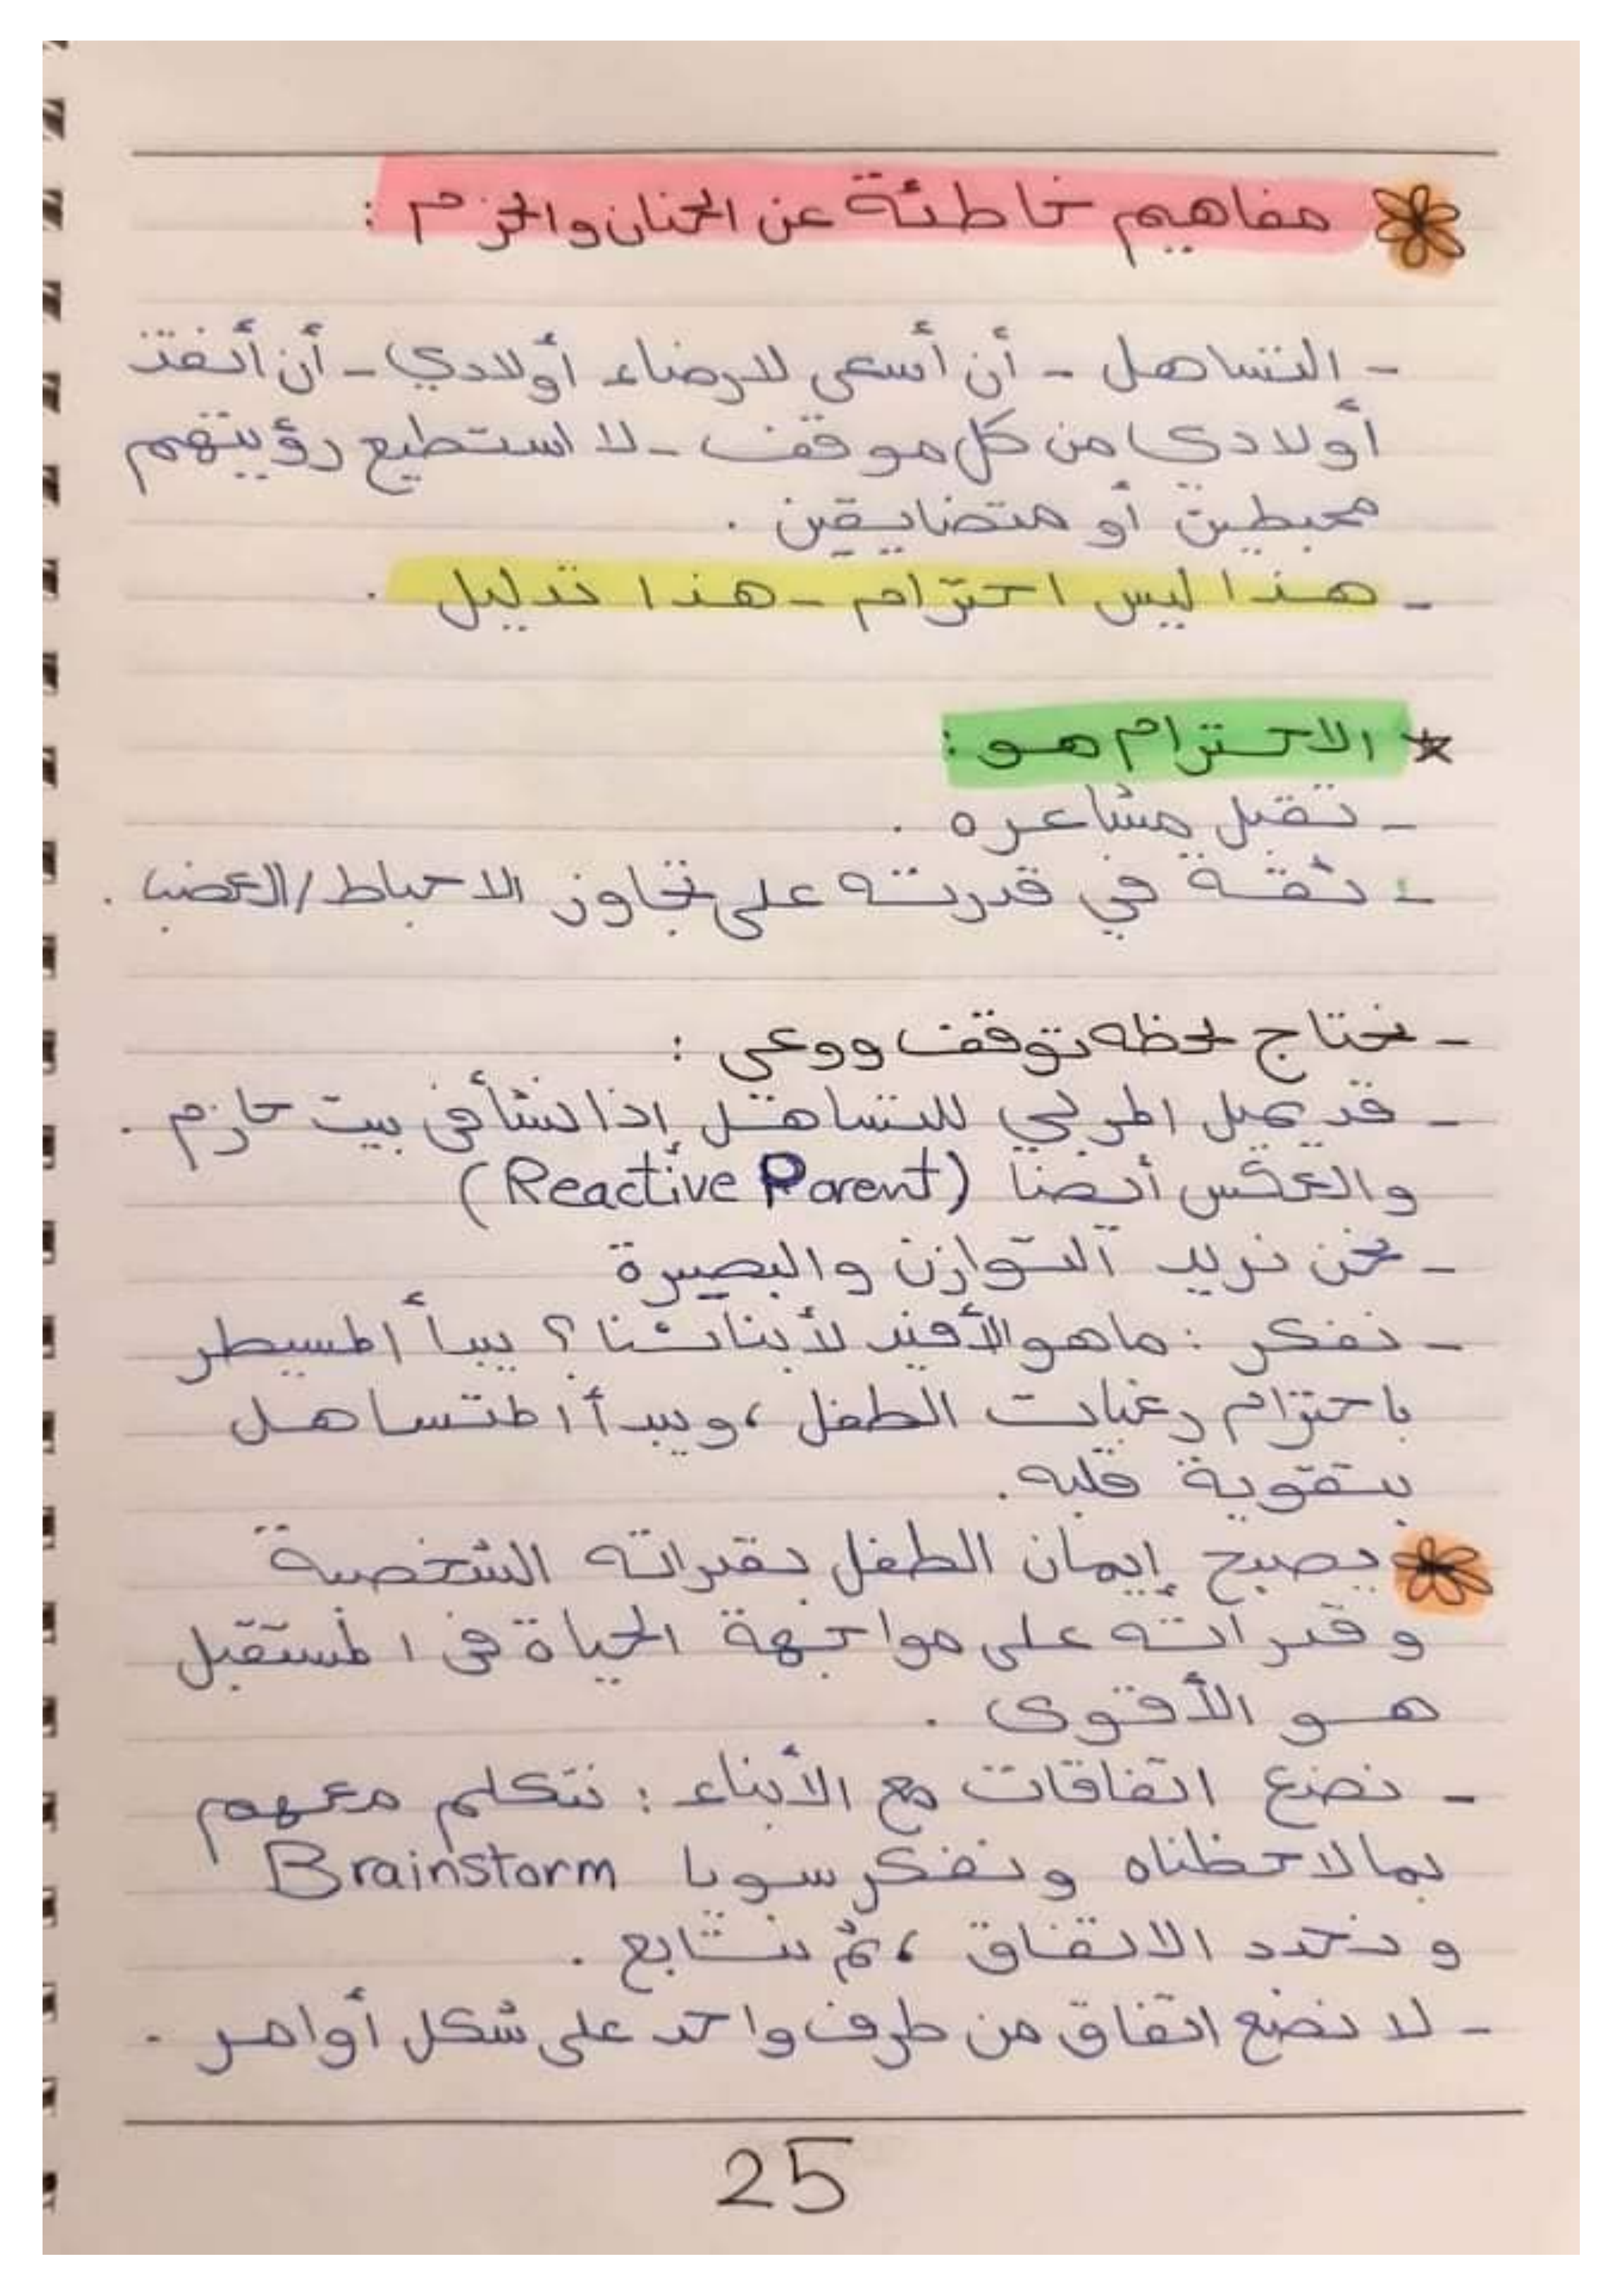 مفاهيم خاطئة عن الحنان والحزم :
- التساهل - أن أسعى لارضاء أولادي - أن أنقذ
أولادي من كل موقف - لا استطيع رؤيتهم
محبطين أو متضايقين .
- هذا ليس احترام - هذا تدليل .
* الاحترام هو :
- تقبل مشاعره .
- ثقة في قدرته على تجاوز الاحباط/الغضب .
- نحتاج لحظه توقف ووعي :
- قد يميل المربي للتساهل إذا نشأ في بيت حازم .
والعكس أيضا (Reactive Parent)
- نحن نريد التوازن والبصيرة
- نفكر : ما هو الأفيد لأبنائنا ؟ يبدأ المسيطر
باحترام رغبات الطفل ، ويبدأ المتساهل
بتقوية قلبه .
يصبح إيمان الطفل بقدراته الشخصية
وقدراته على مواجهة الحياة في المستقبل
هو الأقوى .
- نضع اتفاقات مع الأبناء : نتكلم معهم
بما لاحظناه ونفكر سويا Brainstorm
ونحدد الاتفاق ، ثم نتابع .
- لا نضع اتفاق من طرف واحد على شكل أوامر .
25